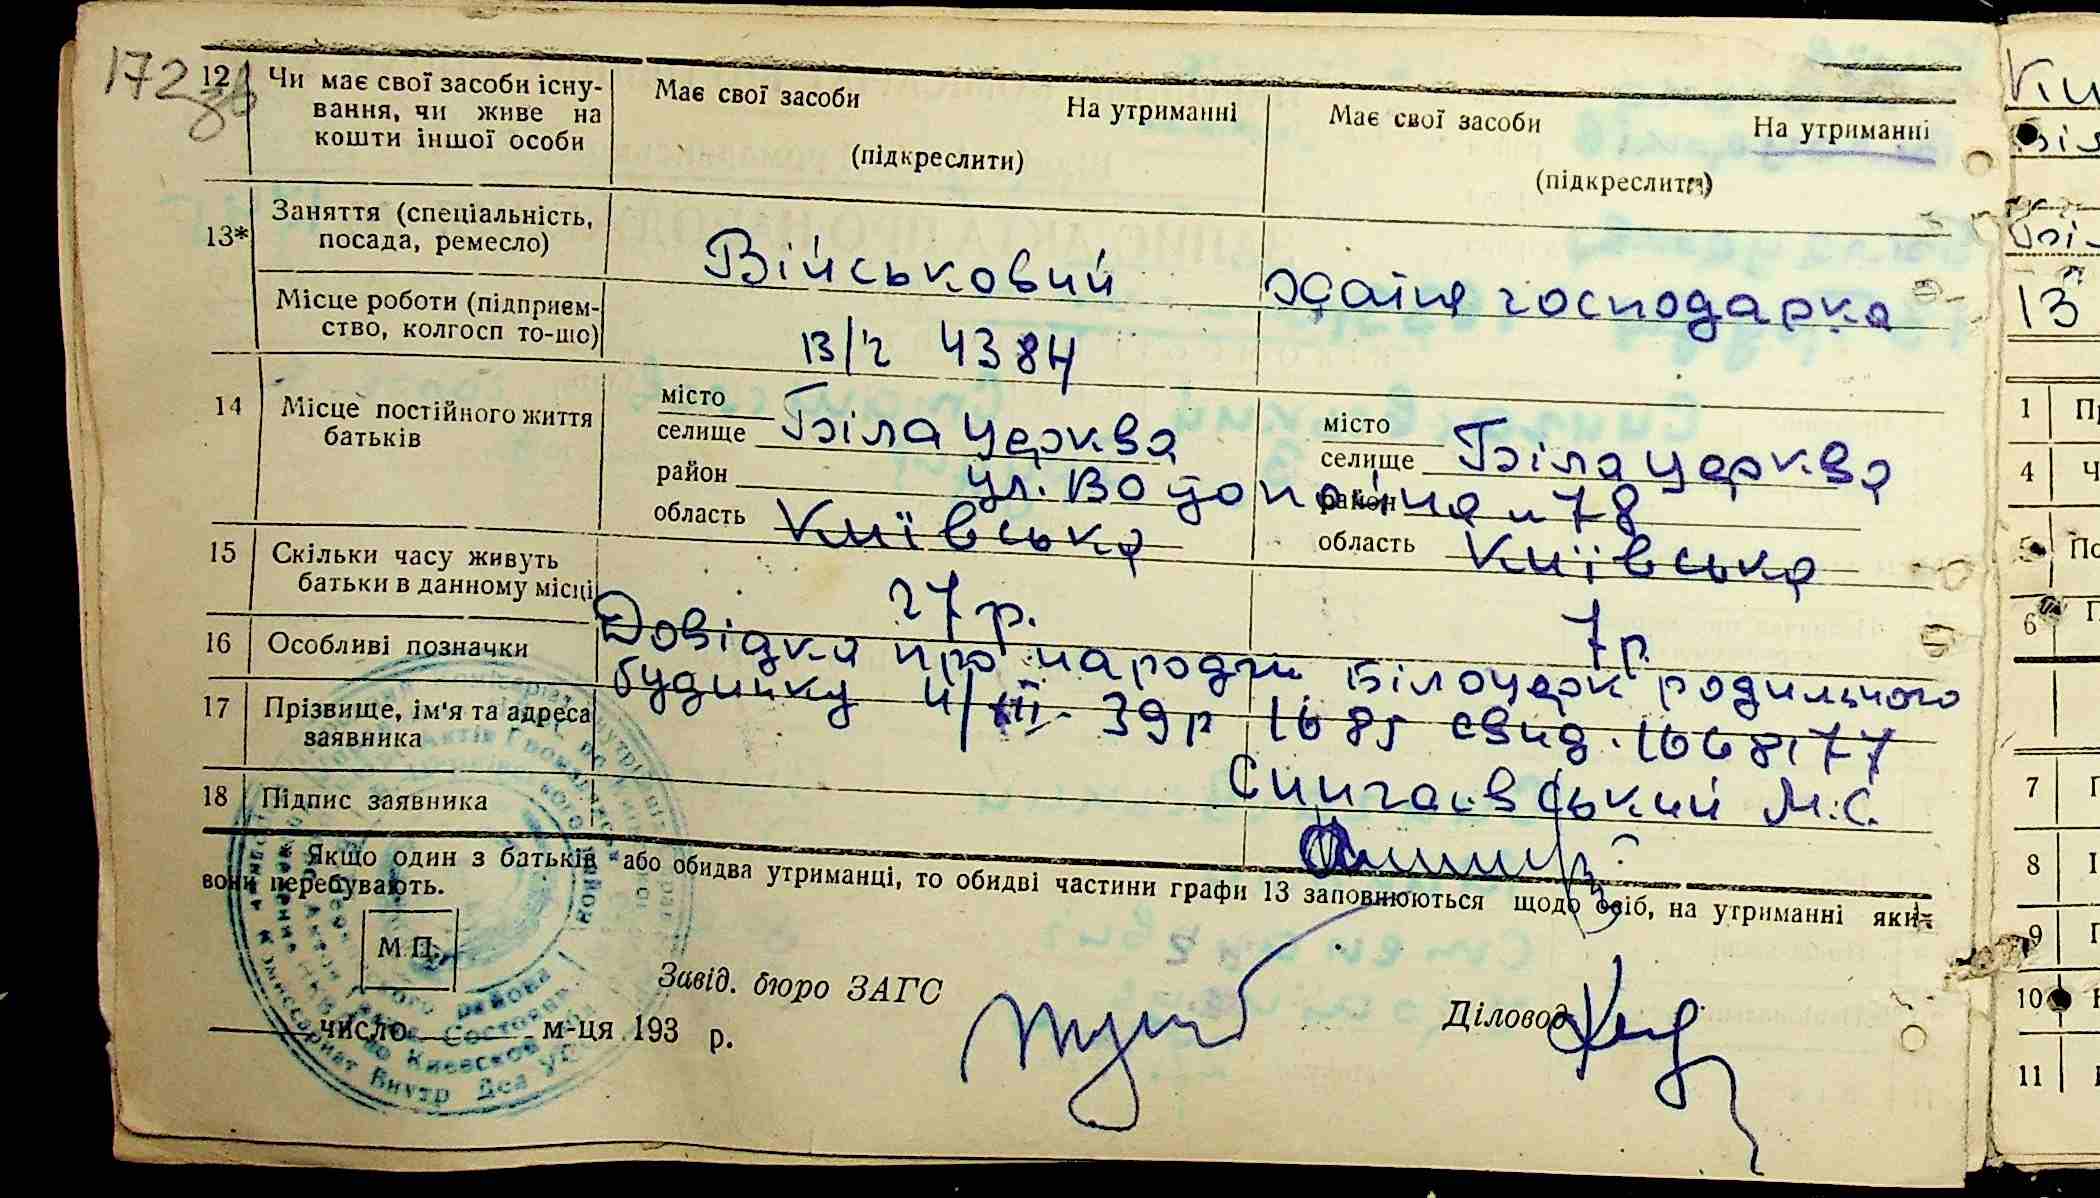 172 зв
12 Чи має свої засоби існу-
вання, чи живе на
кошти іншої особи
Має свої засоби На утриманні
(підкреслити)
Має свої засоби На утриманні
(підкреслити)
13* Заняття (спеціальність,
посада, ремесло)
Військовий
господарка
Місце роботи (підприєм-
ство, колгосп то-що)
в/ч 4384
14 Місце постійного життя
батьків
місто
селище Біла церква
район ул. Водопійна н 78
область Київська
місто
селище Біла церква
район
область Київська
15 Скільки часу живуть
батьки в данному місці
27 р.
7 р.
16 Особливі позначки
Довідка про народж. Білоцерк родильного
будинку 4/III- 39р 1685 свид. 1668177
17 Прізвище, ім'я та адреса
заявника
Сингаєвський М.С.
18 Підпис заявника
Якщо один з батьків або обидва утриманці, то обидві частини графи 13 заповнюються щодо осіб, на утриманні яких
вони перебувають.
М.П.
Завід. бюро ЗАГС
Діловод
число м-ця 193 р.
13
1
4
5
6
7
8
9
10
11